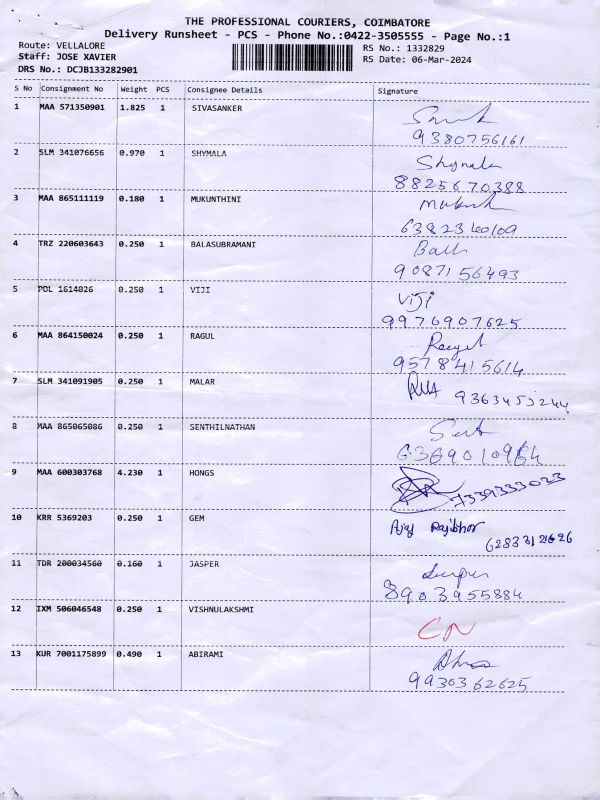 THE PROFESSIONAL COURIERS, COIMBATORE
Delivery Runsheet - PCS - Phone No.:0422-3505555 - Page No.:1
Route: VELLALORE
Staff: JOSE XAVIER
DRS No.: DCJB133282901
RS No.: 1332829
RS Date: 06-Mar-2024
S No Consignment No Weight PCS Consignee Details Signature
1 MAA 571350901 1.825 1 SIVASANKER
9380756161
2 SLM 341076656 0.970 1 SHYMALA Shymala
8825670388
3 MAA 865111119 0.180 1 MUKUNTHINI
6382340109
4 TRZ 220603643 0.250 1 BALASUBRAMANI Balu
9087156493
5 POL 1614026 0.250 1 VIJI Viji
9976907625
6 MAA 864150024 0.250 1 RAGUL
9578415614
7 SLM 341091905 0.250 1 MALAR 9363453244
8 MAA 865065086 0.250 1 SENTHILNATHAN
6369010964
9 MAA 600303768 4.230 1 HONGS 7339333033
10 KRR 5369203 0.250 1 GEM Ajay Rajbhor
6283312626
11 TDR 200034560 0.160 1 JASPER
8903955884
12 IXM 506046548 0.250 1 VISHNULAKSHMI CN
13 KUR 7001175899 0.490 1 ABIRAMI
9930362625